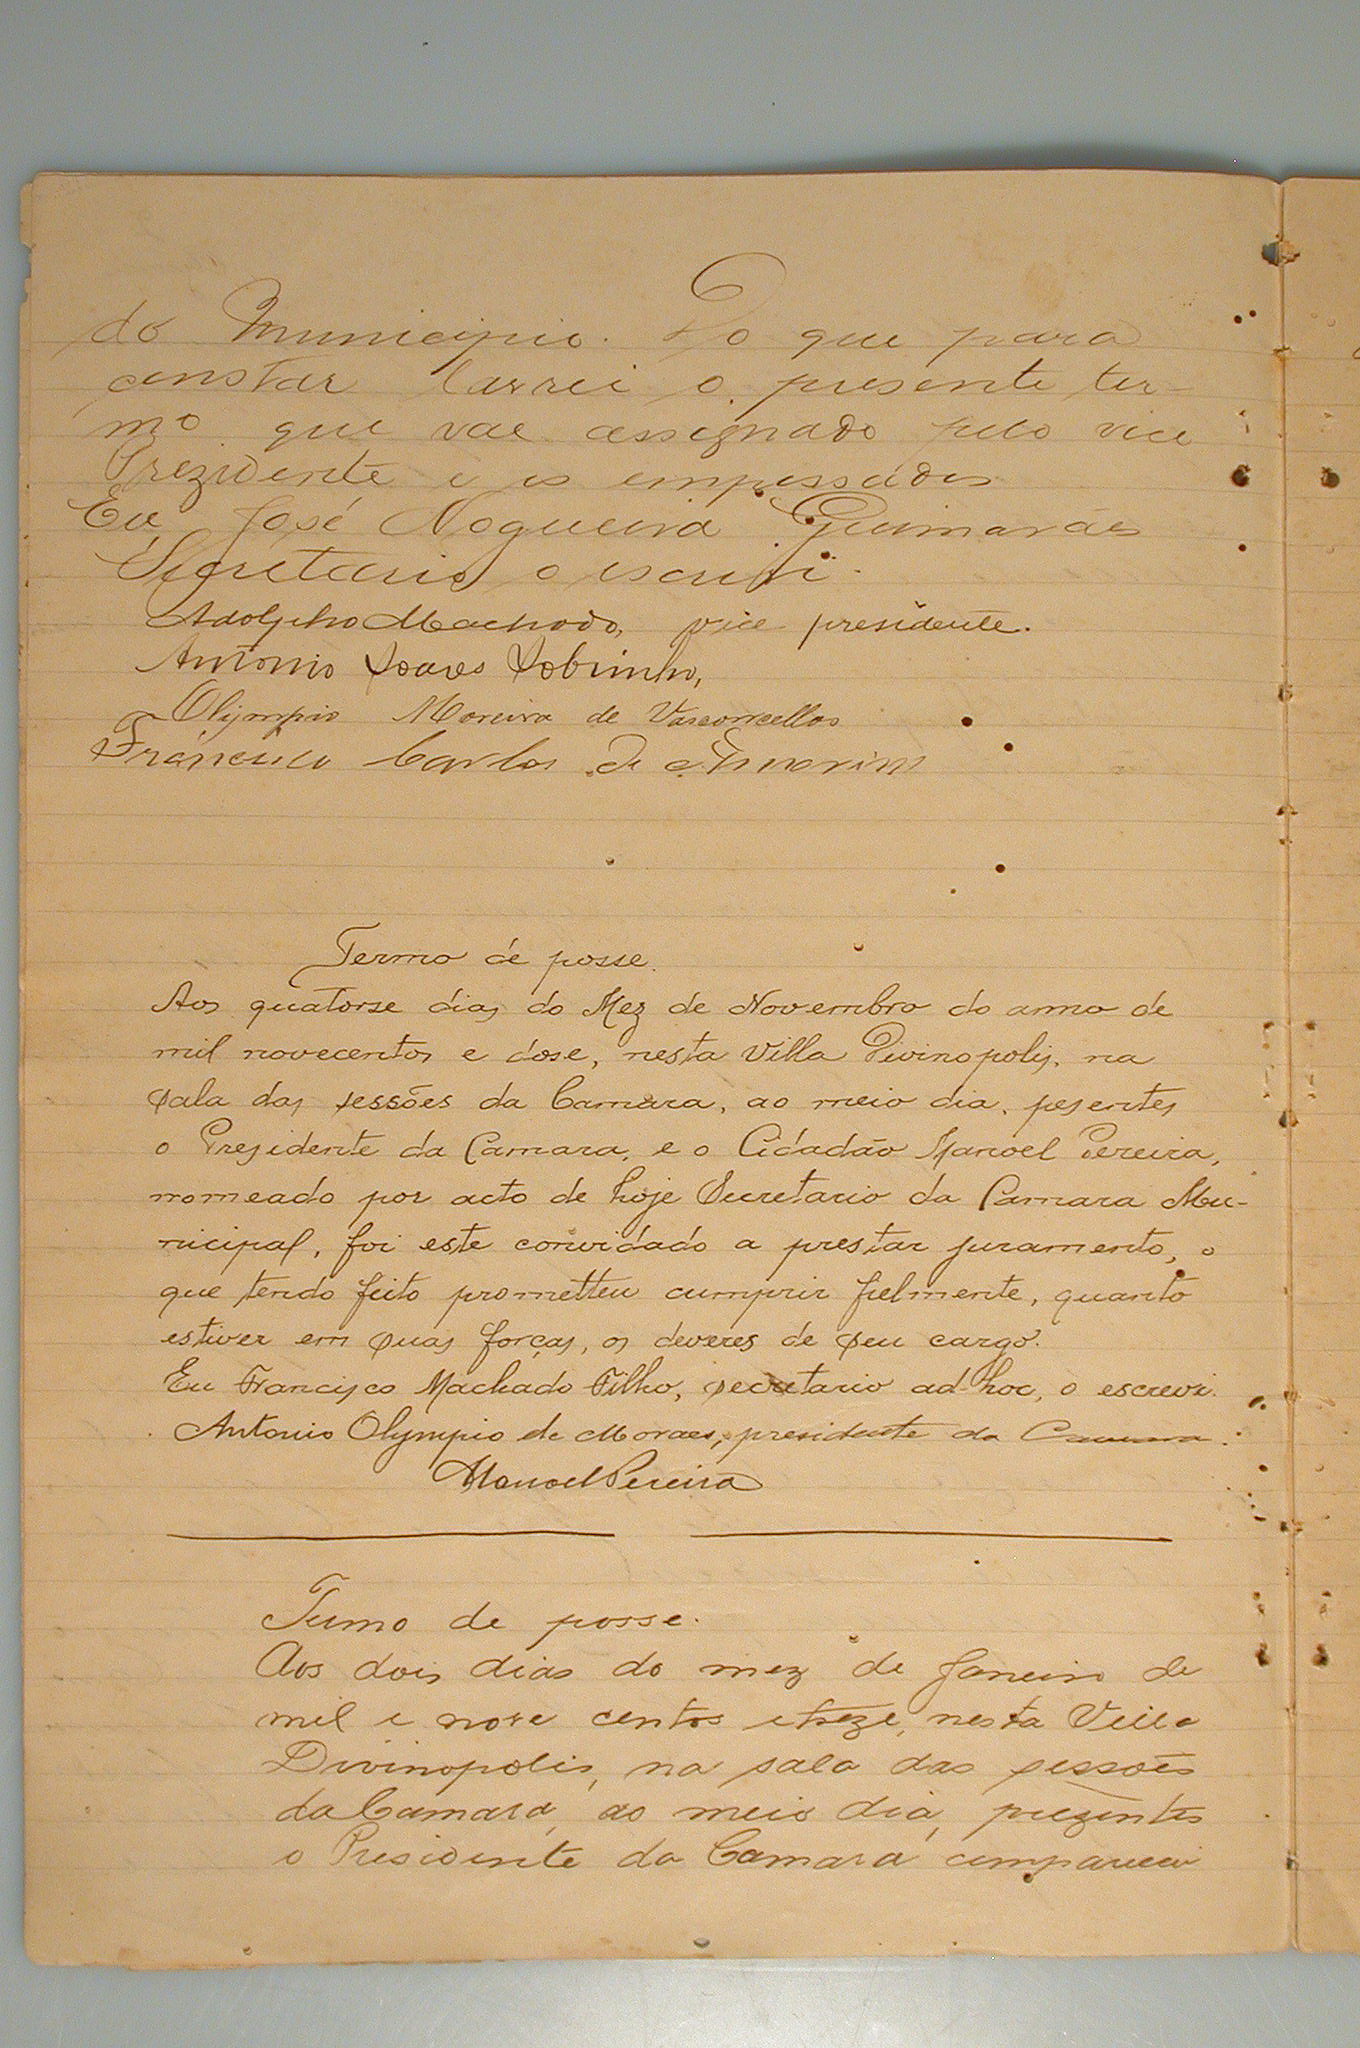 do Municipio. Do que para
constar lavrei o presente ter-
mo que vae assignado pelo vice
Prezidente e os empossados
Eu, José Nogueira Guimarães
Secretario o escrivi.
Adolpho Machado, vice presidente.
Antonio Soares Sobrinho,
Olympio Moreira de Vasconcellos
Francisco Carlos de Amorim
Termo de posse.
Aos quatorse dias do Mez de Novembro do anno de
mil novecentos e dose, nesta Villa Divinopolis, na
sala das sessões da Camara, ao meio dia, pesentes
o Presidente da Camara, e o Cidadão Manoel Pereira,
nomeado por acto de hoje Secretario da Camara Mu-
nicipal, foi este convidado a prestar juramento, o
que tendo feito prometteu cumprir fielmente, quanto
estiver em suas forças, os deveres de seu cargo.
Eu Francisco Machado Filho, secretario ad-hoc, o escrevi.
Antonio Olympio de Moraes, presidente da Camara.
Manoel Pereira
Termo de posse.
Aos dois dias do mez de Janeiro de
mil e nove centos e treze, nesta Villa
Divinopolis, na sala das sessões
da Camara, ao meio dia, prezentes
o Presidente da Camara compareceu